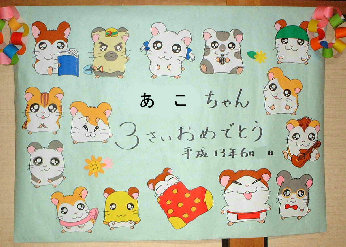 あこ ちゃん
3さいおめでとう
平成 13年6月 日